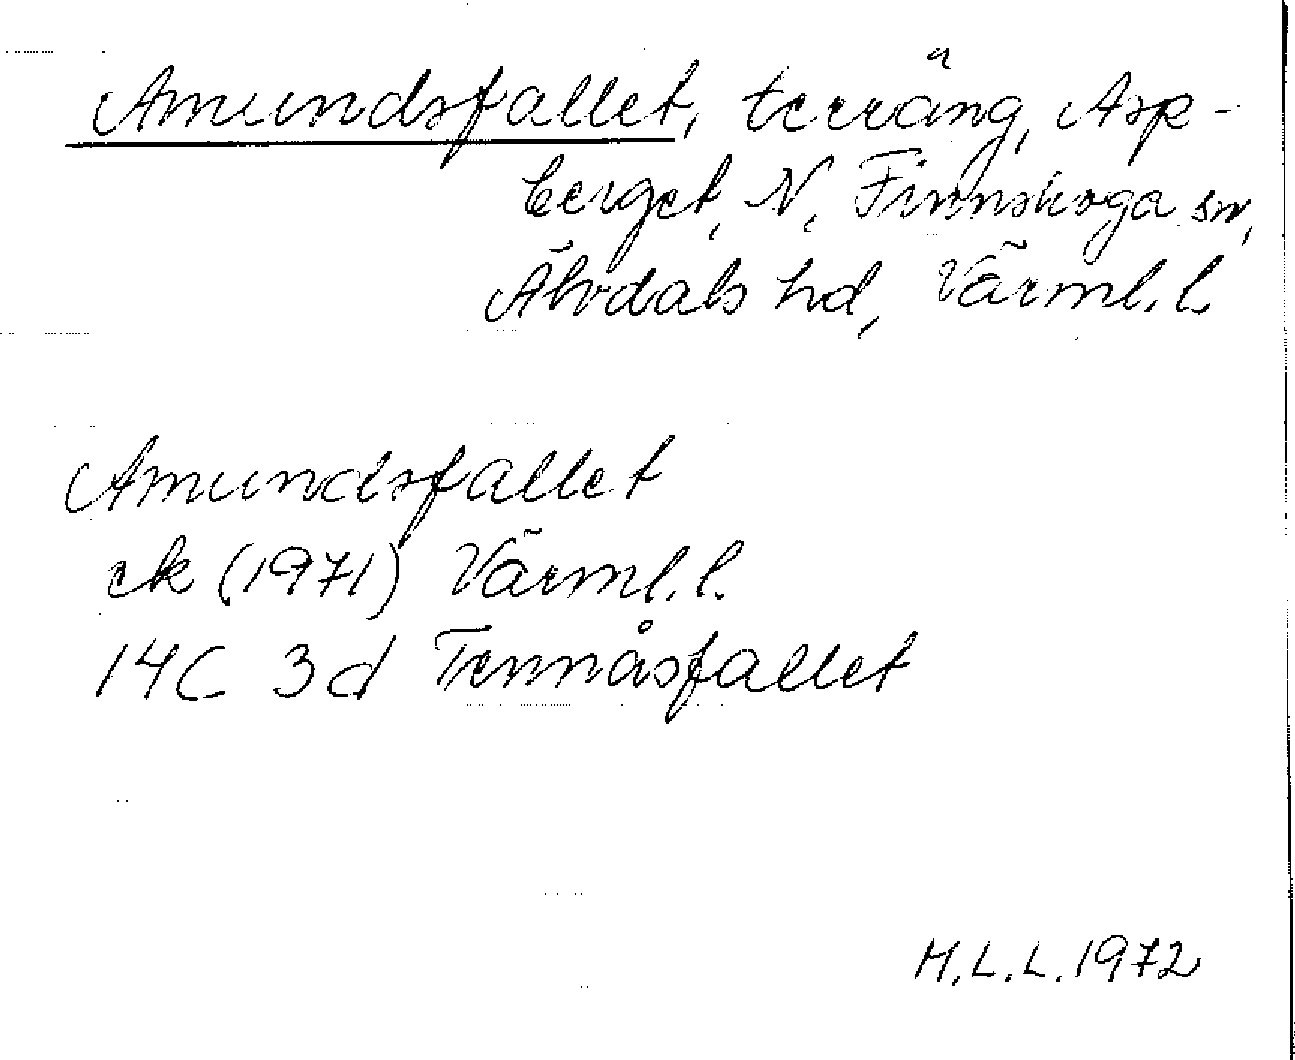 Amundsfallet, terräng, Asp-
berget, N, Finnskoga sn,
Älvdals hd, Värml. l.
Amundsfallet
ek (1971) Värml. l.
14C 3d Tennåsfallet
M.L.L. 1972